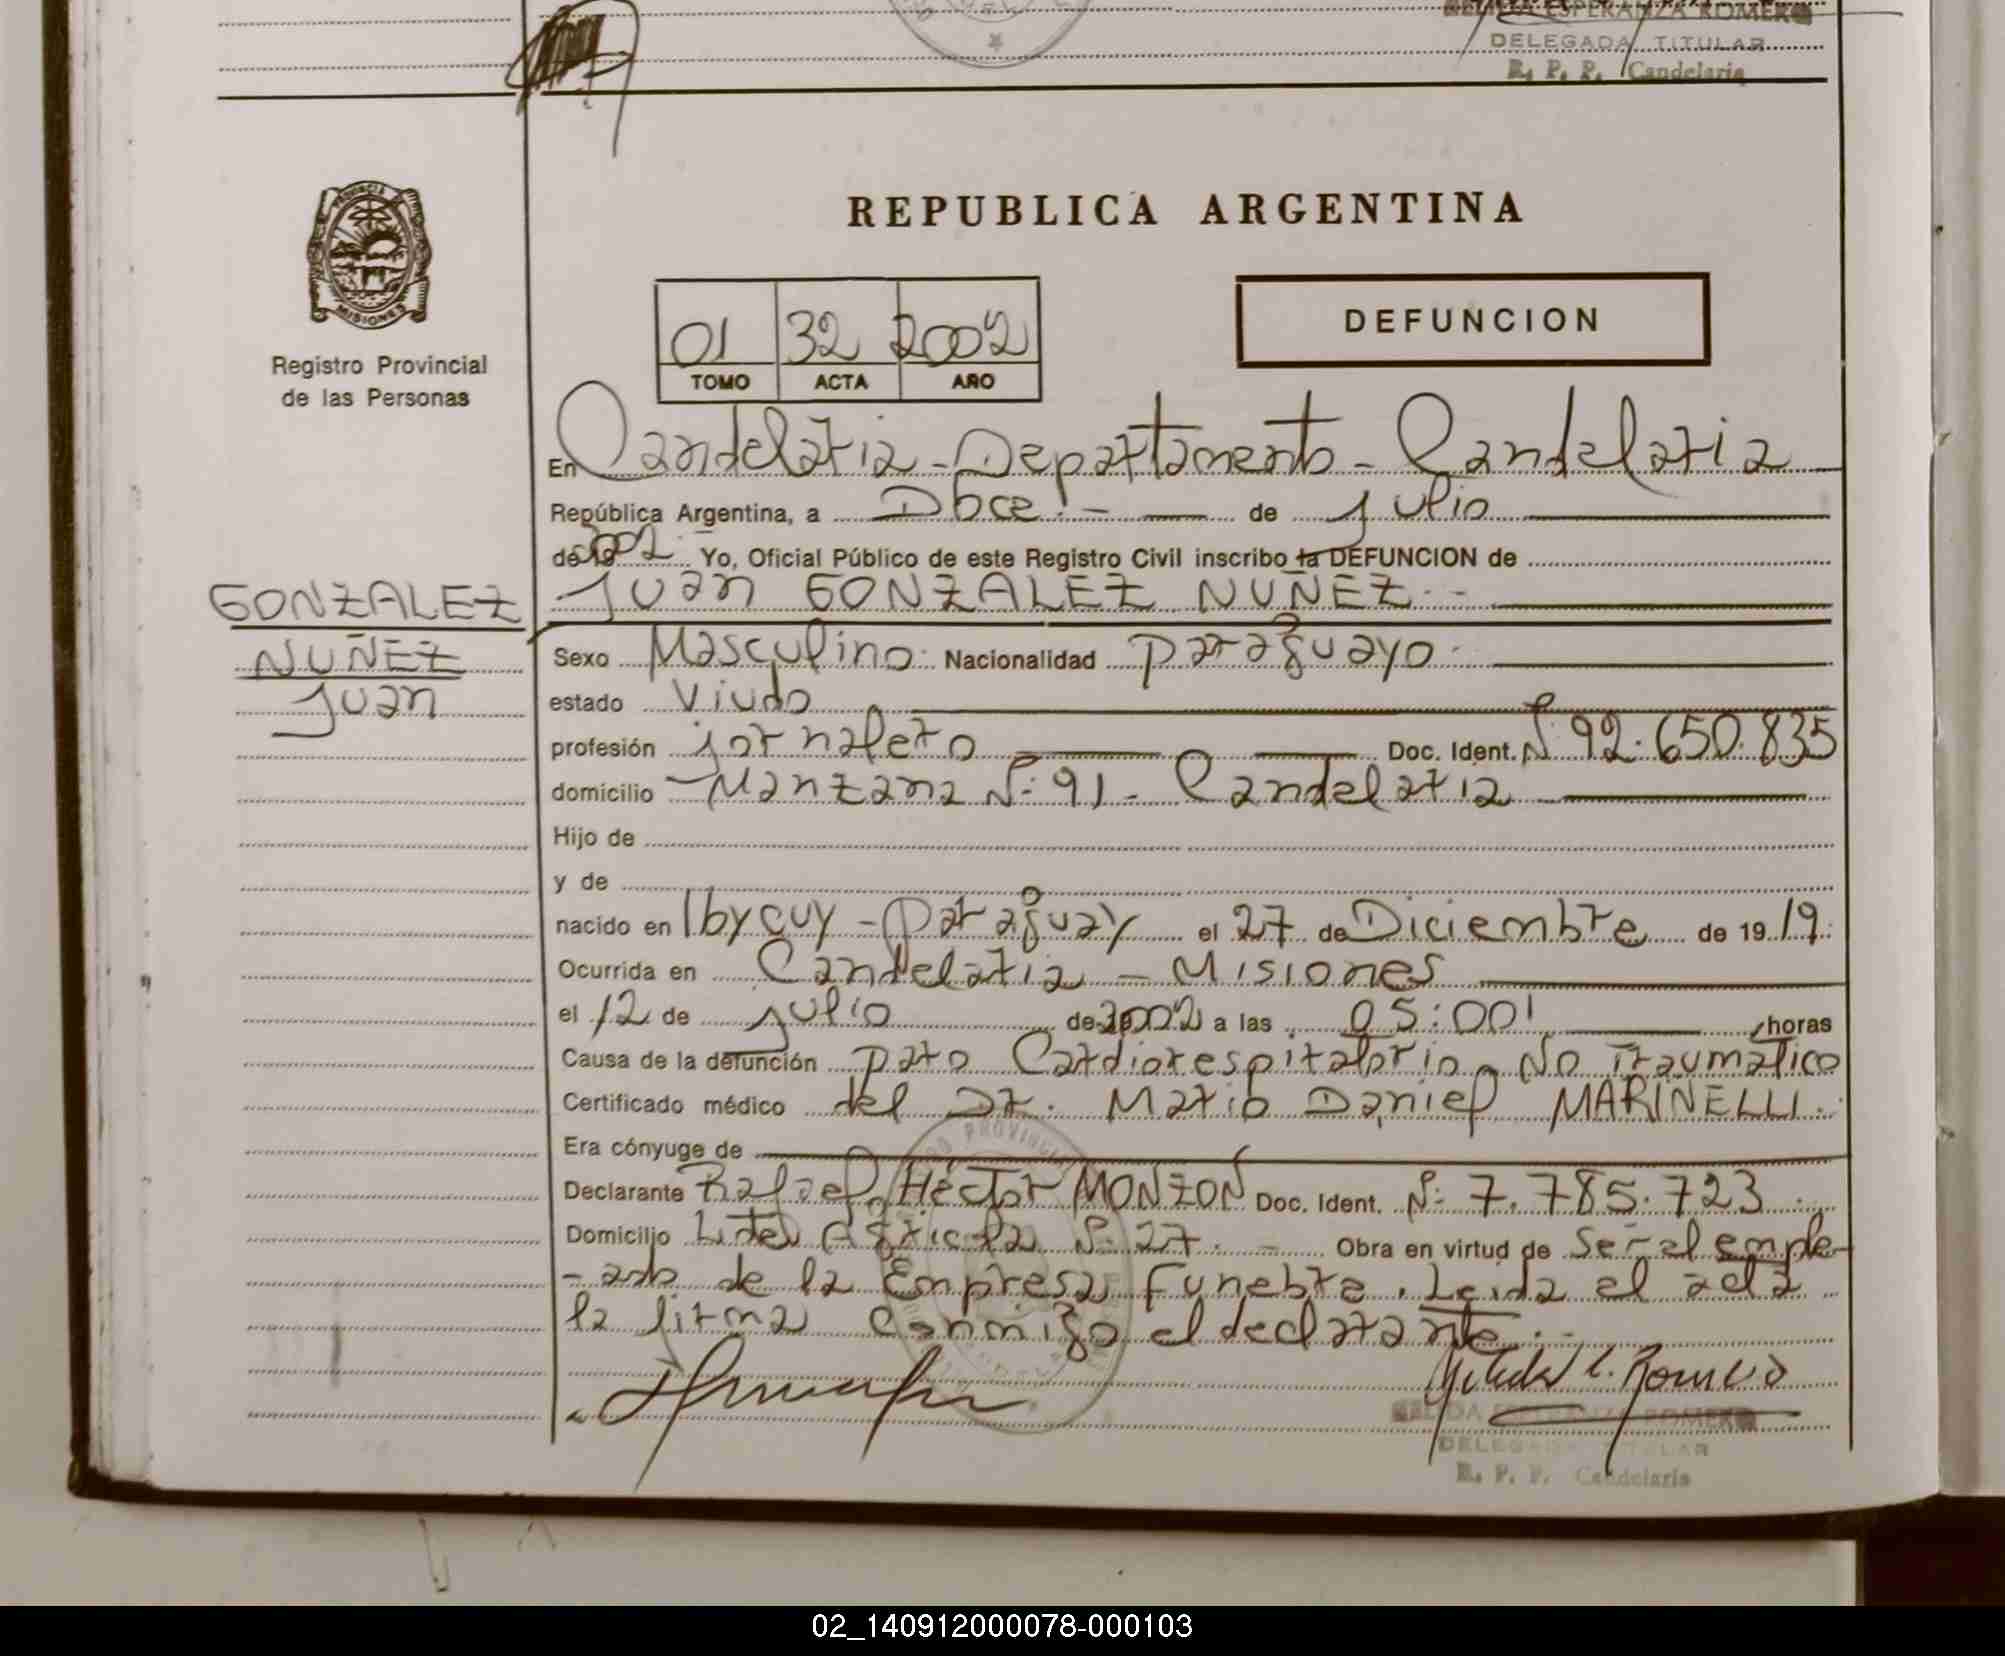 ESPERANZA ROMERO
DELEGADA TITULAR
R. P. P. Candelaria
PROVINCIA
MISIONES
Registro Provincial
de las Personas
REPUBLICA ARGENTINA
01 32 2002
TOMO ACTA AÑO
DEFUNCION
En Candelaria - Departamento - Candelaria
República Argentina, a Doce.- de julio
de 19 2002. Yo, Oficial Público de este Registro Civil inscribo la DEFUNCION de
GONZALEZ
NUÑEZ
Juan
Juan GONZALEZ NUÑEZ.-
Sexo Masculino. Nacionalidad paraguayo.
estado Viudo
profesión jornalero Doc. Ident. Nº 92.650.835
domicilio Manzana Nº 91 - Candelaria
Hijo de
y de
nacido en Ibycuy - paraguay el 27 de Diciembre de 19 19.
Ocurrida en Candelaria - Misiones
el 12 de julio de 2002 a las 05:00' horas
Causa de la defunción paro Cardiorespiratorio No Traumático
Certificado médico del Dr. Mario Daniel MARINELLI.
Era cónyuge de
Declarante Rafael Héctor MONZON Doc. Ident. Nº 7.785.723.
Domicilio Lote Agricola Nº 27. - Obra en virtud de Ser el emple-
-ado de la Empresa Funebre. Leida el acta
la firma conmigo el declarante.-
ESPERANZA ROMERO
DELEGADA TITULAR
R. P. P. Candelaria
02_140912000078-000103